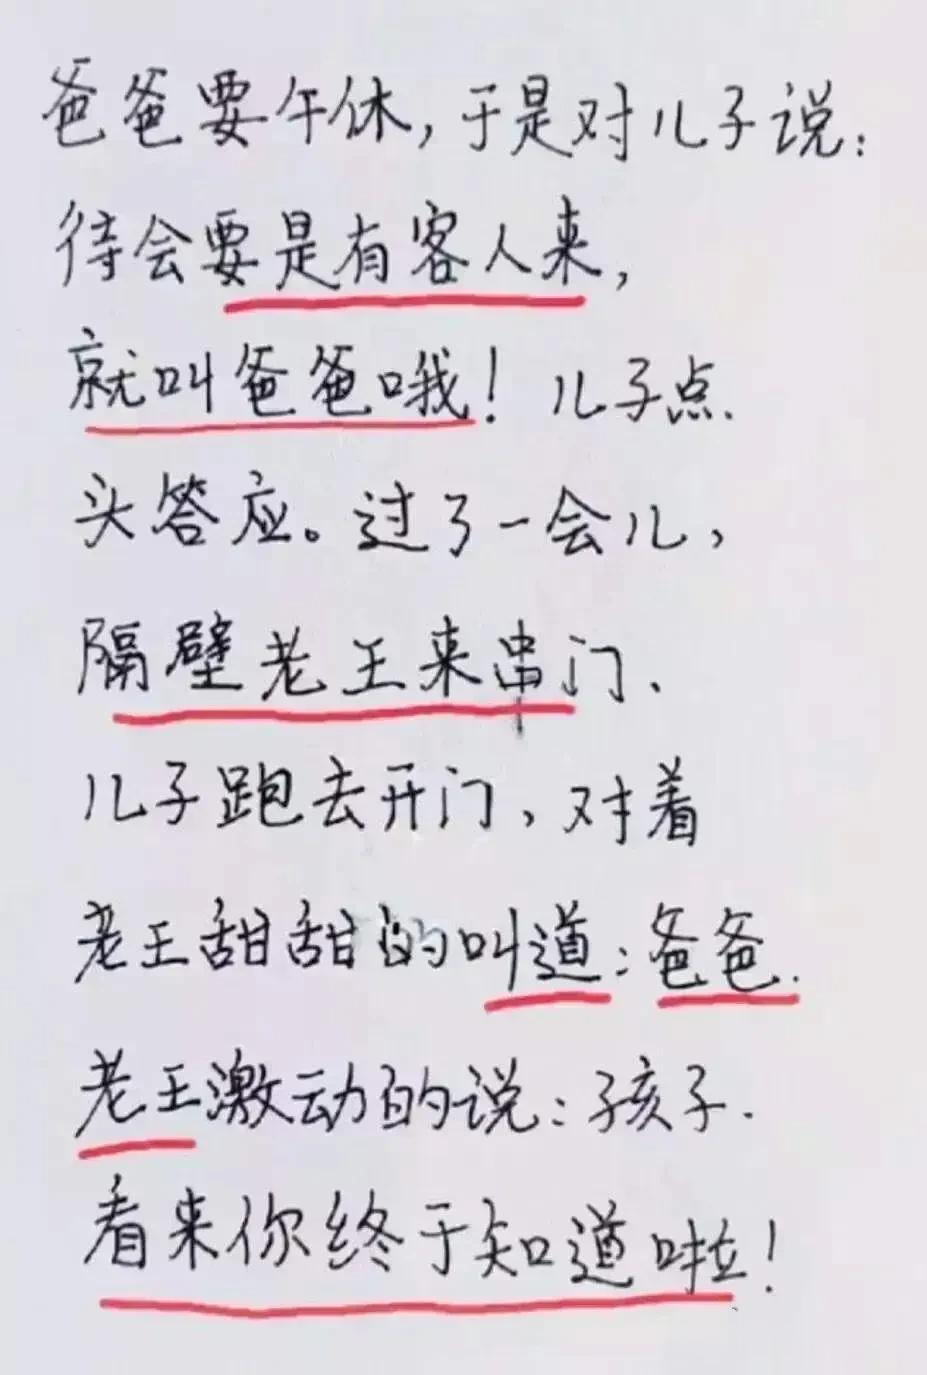 爸爸要午休,于是对儿子说:
待会要是有客人来,
就叫爸爸哦!儿子点
头答应。过了一会儿,
隔壁老王来串门、
儿子跑去开门,对着
老王甜甜的叫道:爸爸.
老王激动的说:孩子.
看来你终于知道啦!